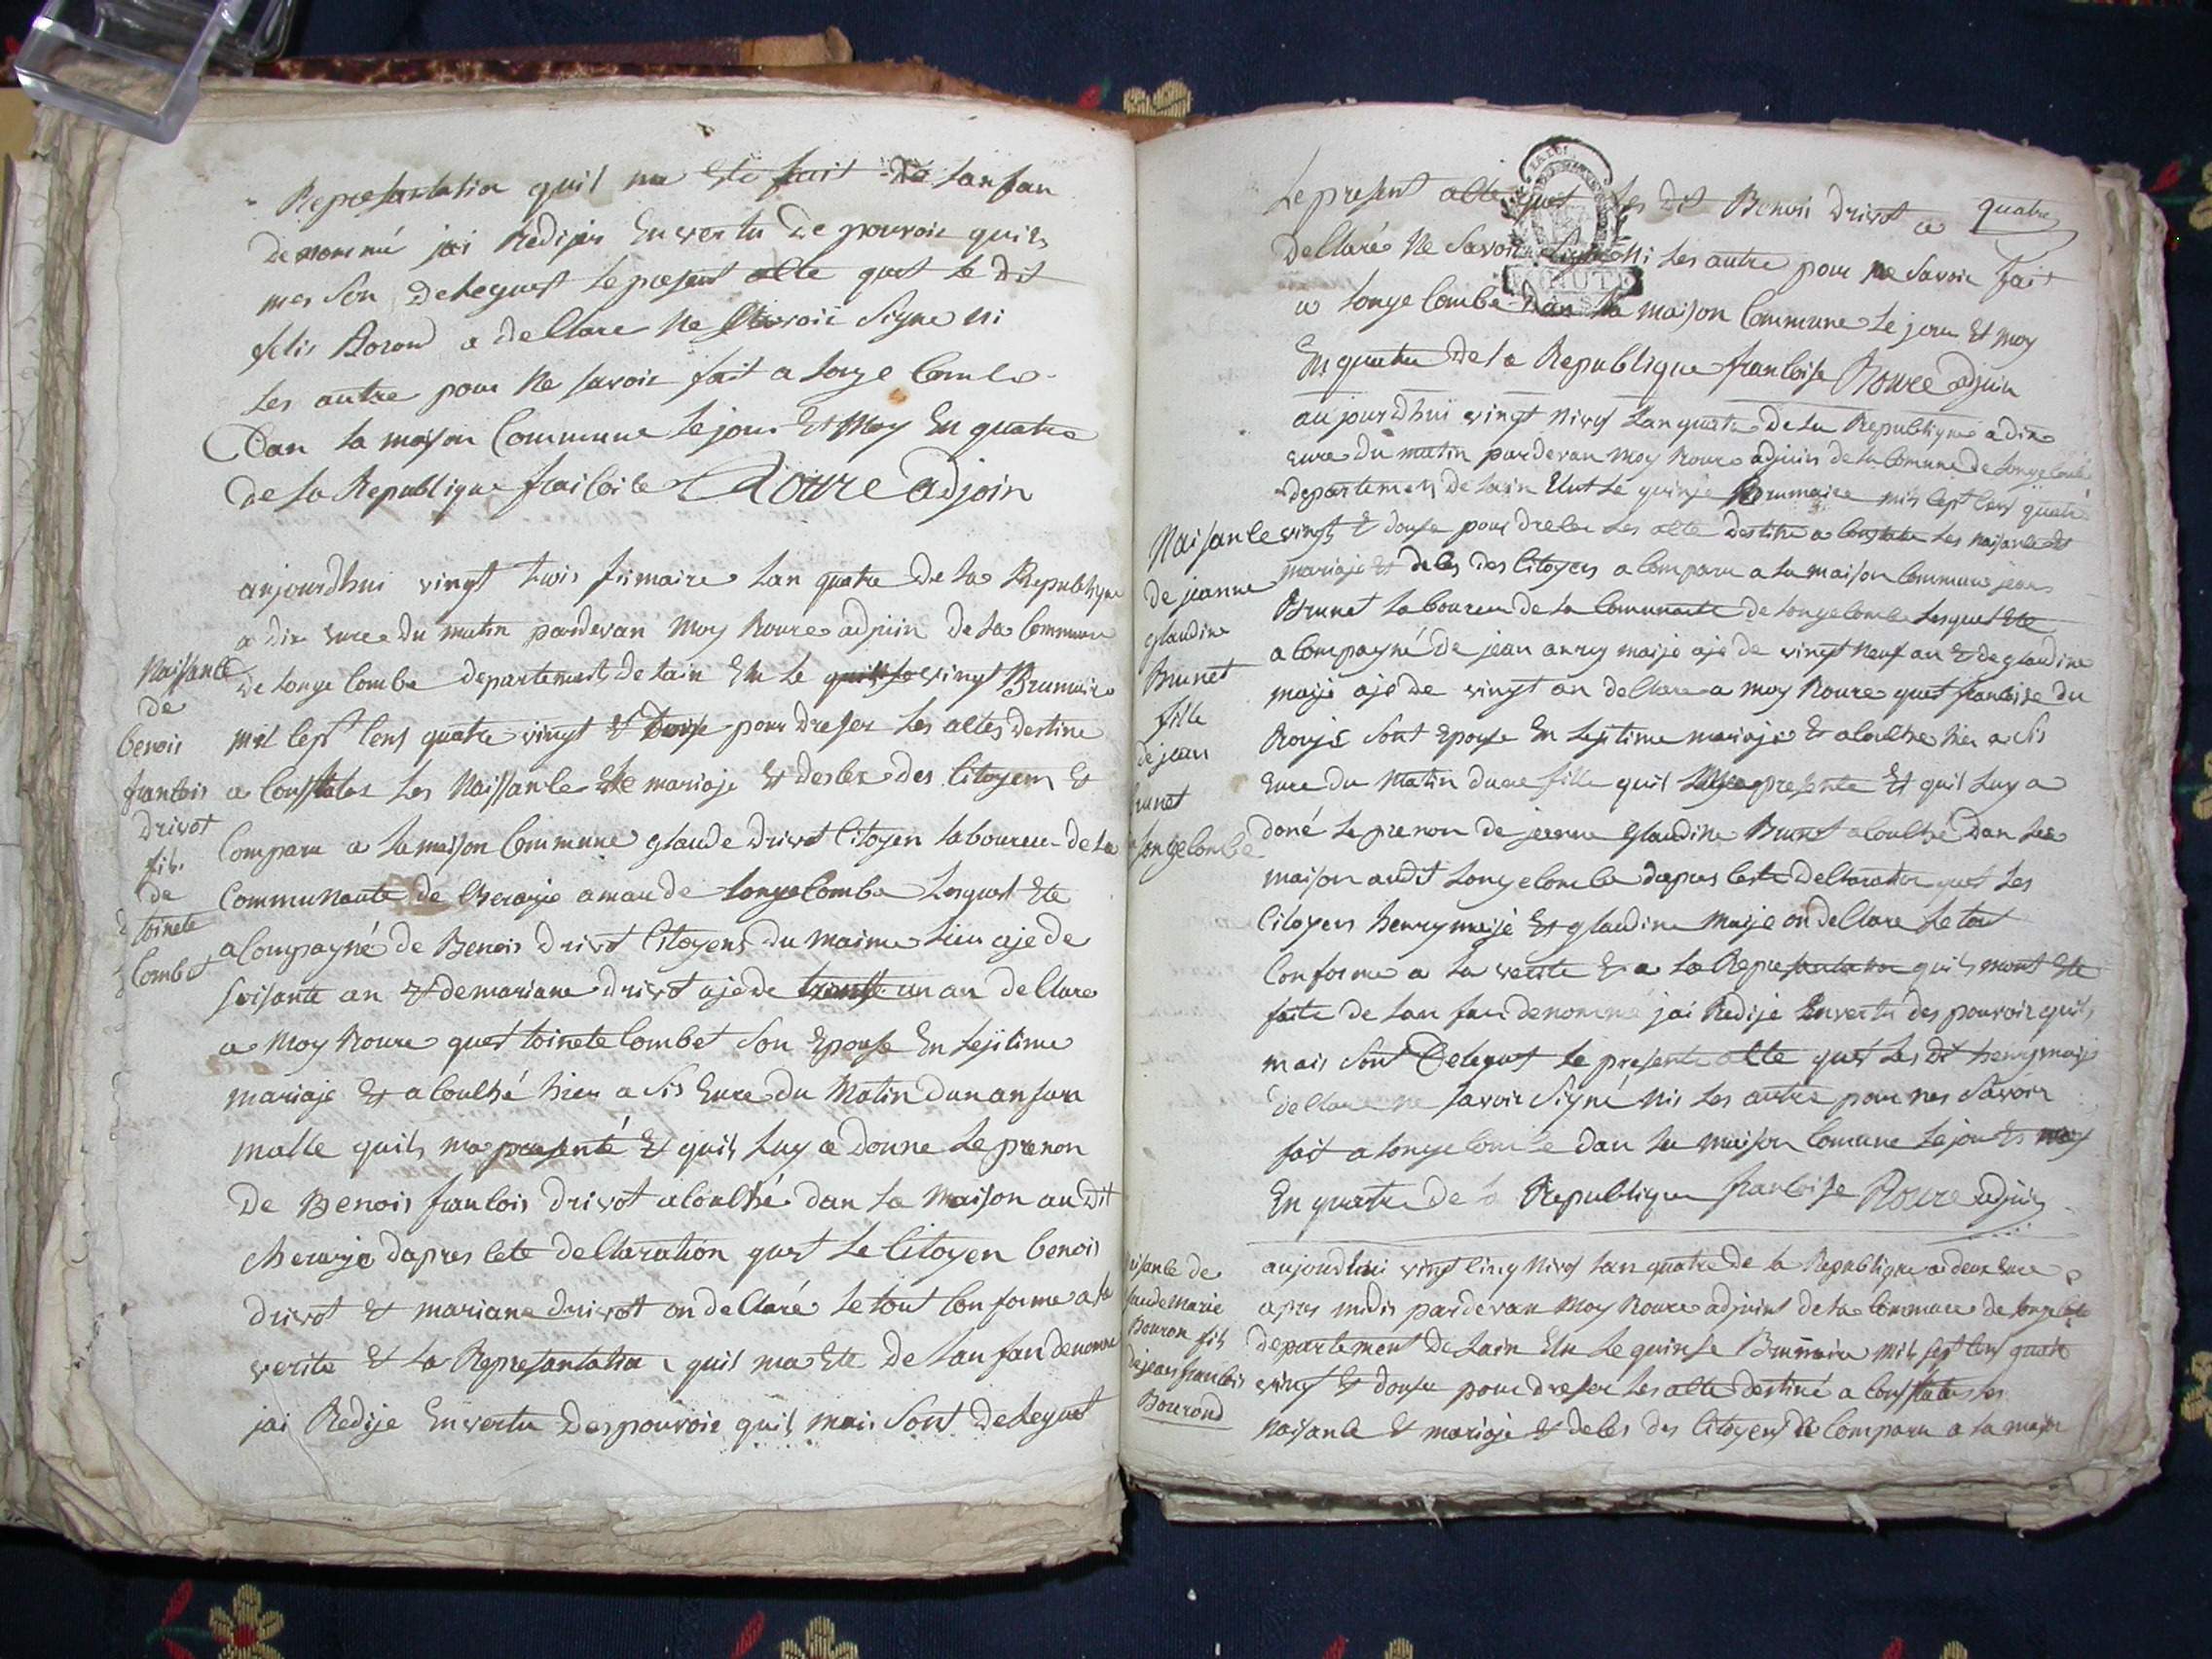 Represantation quil ma Eté fait de Lanfan
denommé jai Redijer En vertu de pouvoir quils
mes son delequest Le present alte quet Le dit
felis Borond a declare Ne savoir Signe Ni
Les autre pour Ne savoir fait a Longe Combe
Dan La maison Commune Le jour Et Moy En quatre
de La Republique Roure adjoin
aujourdhui vingt trois frimaire Lan quatre de La Republique
a dix Eure du matin pardevan Moy Roure adjoin de La Commune
de Longe Combe departement de Lain Elu Le vingt Brumaire
mil sept Cens quatre vingt & pour dreser Les altes destine
a Consttater Les Naissance Ete mariaje Et desces des Citoyens Et
Comparu a La maison Commune glaude drivot Citoyen Laboureur de La
Communaute de Cheraije amau de Longe Combe Lesquel Ete
a Compagné de Benois drivot Citoyens du maime Lieu aje de
soisante an Et de mariane drivot aje de trentte un an declare
a Moy Roure quet toinete Combet Son Epouse En Lejitime
mariaje Et a Couché hier a Sis Eure du Matin dun anfan
malle quils ma presenté Et quil Luy a donne Le prenon
de Benois francois drivot acouché dan La Maison audit
cheraije dapres Cete declaration quet Le Citoyen benois
drivot Et mariane drivot on declaré Le tout Conforme a La
verite Et La Represantation quil ma Ete de Lanfan denomme
jai Redije En vertu des pouvoir quils mais Sont delequet
Naissance
de
benois
francois
drivot
fils
de
toinete
Combet
quatre
Le present alte quet Les dit Benois drivot a
declaré Ne Savoir Signe Ni Les autre pour ne Savoir fait
a Longe Combe dan La maison Commune Le jour Et moy
En quatre de La Republique francoise Roure adjoin
aujourdhui vingt Nivos Lan quatre de La Republique a dix
eure du matin pardevan Moy Roure adjoin de La Comune de Longe Combe
departement de Lain Elut Le quinze Brumaire mil sept Cens quatre
vingt & douse pour dreser Les alte destine a Constater Les naisance Et
mariaje Et deces des Citoyens a Comparu a La maison Commune jean
Brunet Laboureur de La Communaute de Longe Combe Lesquel Ete
a Compagné de jean anry maije aje de vingt Neuf an Et de glaudine
maije aje de vingt an declare a moy Roure quet francoise du
Rouje Sont Epouse En Lejitime mariaje Et a Couche hier a Sis
Eure du Matin dune fille quil presente Et quil Luy a
doné Le prenon de jeanne glaudine Brunet a Couché dan Les
maison audit Longe Combe dapres Cete declaration quet Les
Citoyens henry maije Et glaudine Maije on declare Le tout
Conforme a La verite Et a La Represantation quils mont Ete
faite de Lan fan denomme jai Redije En vertu des pouvoir quils
mais Sont delequet Le presente alte quet Les dit henry maije
declare ne savoir Signé Nis Les autre pour nes Savoir
fait a Longe Combe dan La maison Comune Le jour Et moy
En quatre de La Republique francoise Roure adjoin
Naisance
de jeanne
glaudine
Brunet
fille
de jean
runet
Longe Combe
aujourdhui vingt Cinq Nivos Lan quatre de La Republique a deux Eure
apres midis pardevan Moy Roure adjoint de La Commune de Longe Combe
departement de Lain Elu Le quinse Brumaire mil sept Cens quatre
vingt & douse pour dreser Les alte destiné a Consttater Les
Naisance Et mariaje Et deces des Citoyens Comparu a La maison
isance de
aude Marie
Bouron fils
de jean francois
Bourond